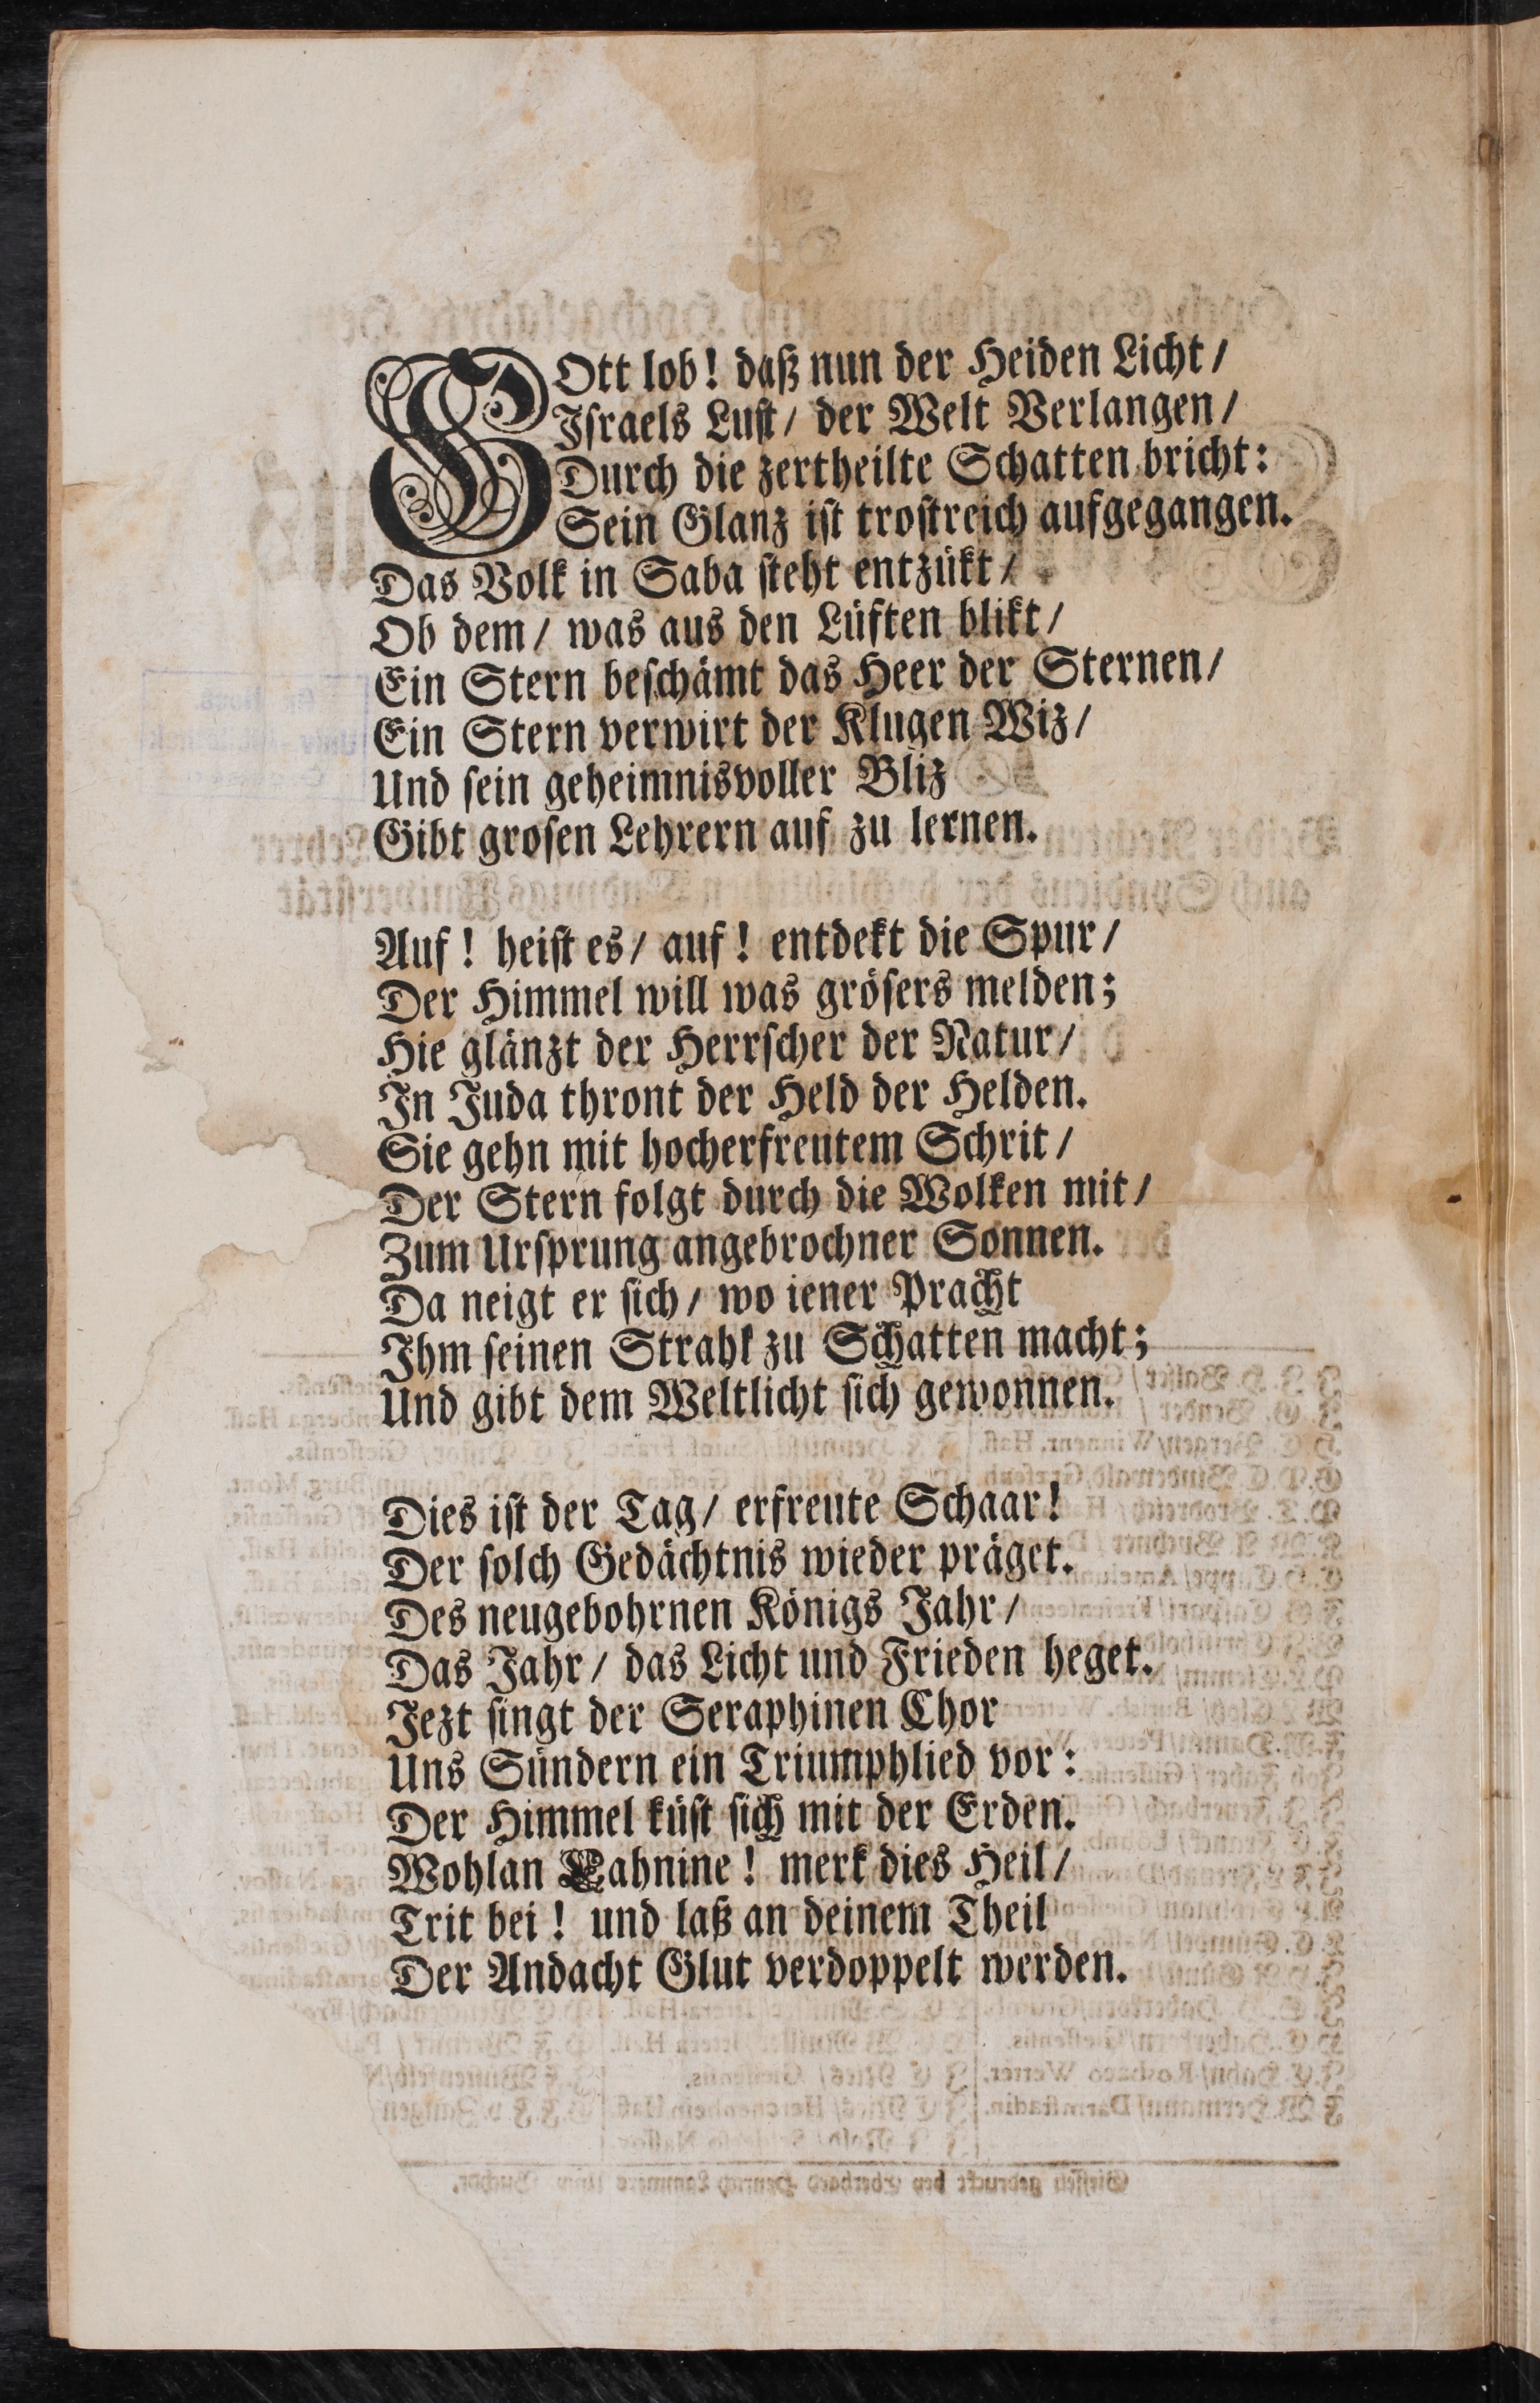 GOtt lob! daß nun der Heiden Licht/
Iſraels Luſt/ der Welt Verlangen/
Durch die zertheilte Schatten bricht:
Sein Glanz iſt troſtreich aufgegangen.
Das Volk in Saba ſteht entzükt/
Ob dem/ was aus den Lüften blikt/
Ein Stern beſchämt das Heer der Sternen/
Ein Stern verwirt der Klugen Wiz/
Und ſein geheimnisvoller Bliz
Gibt groſen Lehrern auf zu lernen.
Auf! heiſt es/ auf! entdekt die Spur/
Der Himmel will was gröſers melden;
Hie glänzt der Herrſcher der Natur/
In Juda thront der Held der Helden.
Sie gehn mit hocherfreutem Schrit/
Der Stern folgt durch die Wolken mit/
Zum Urſprung angebrochner Sonnen.
Da neigt er ſich/ wo iener Pracht
Ihm ſeinen Strahl zu Schatten macht;
Und gibt dem Weltlicht ſich gewonnen.
Dies iſt der Tag/ erfreute Schaar!
Der ſolch Gedächtnis wieder präget.
Des neugebohrnen Königs Jahr/
Das Jahr/ das Licht und Frieden heget.
Jezt ſingt der Seraphinen Chor
Uns Sündern ein Triumphlied vor:
Der Himmel küſt ſich mit der Erden.
Wohlan Lahnine! merk dies Heil/
Trit bei! und laß an deinem Theil
Der Andacht Glut verdoppelt werden.